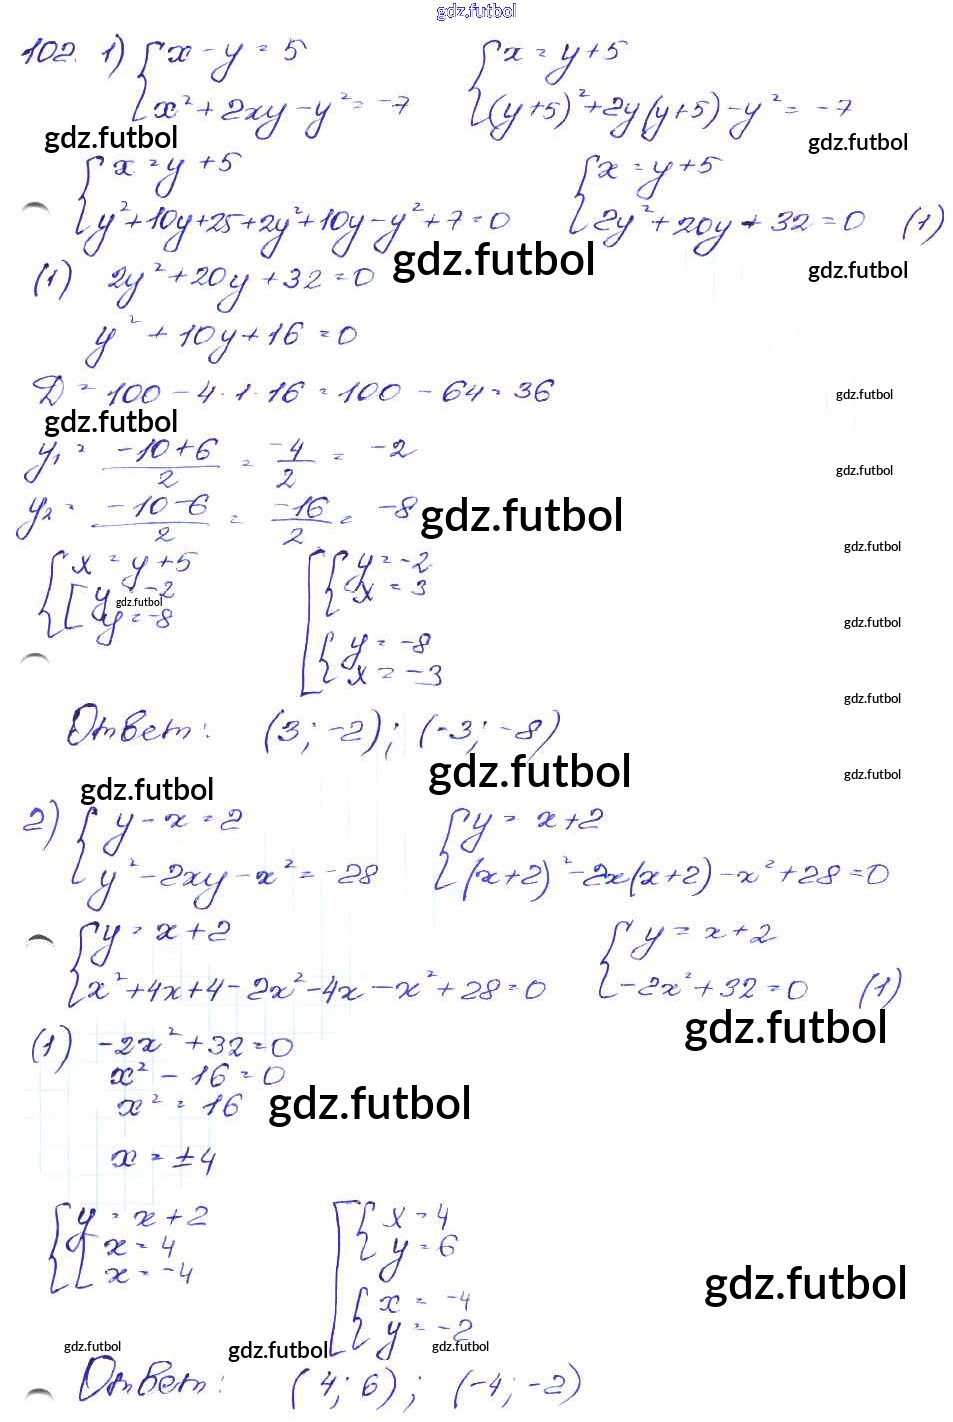 gdz.futbol
102. 1) { x - y = 5    { x = y + 5
{ x² + 2xy - y² = -7    { (y+5)² + 2y(y+5) - y² = -7
gdz.futbol    gdz.futbol
{ x = y + 5    { x = y + 5
{ y² + 10y + 25 + 2y² + 10y - y² + 7 = 0    { 2y² + 20y + 32 = 0   (1)
gdz.futbol    gdz.futbol
(1)  2y² + 20y + 32 = 0
y² + 10y + 16 = 0
D = 100 - 4·1·16 = 100 - 64 = 36
gdz.futbol
gdz.futbol
y₁ = (-10+6)/2 = -4/2 = -2
gdz.futbol
y₂ = (-10-6)/2 = -16/2 = -8
gdz.futbol
gdz.futbol
{ x = y + 5    [ { y = -2
{ [ y = -2    [ { x = 3
gdz.futbol
{ [ y = -8
gdz.futbol
[ { y = -8
[ { x = -3
gdz.futbol
Ответ: (3; -2); (-3; -8)
gdz.futbol    gdz.futbol
gdz.futbol
2) { y - x = 2    { y = x + 2
{ y² - 2xy - x² = -28    { (x+2)² - 2x(x+2) - x² + 28 = 0
{ y = x + 2    { y = x + 2
{ x² + 4x + 4 - 2x² - 4x - x² + 28 = 0    { -2x² + 32 = 0   (1)
gdz.futbol
(1)  -2x² + 32 = 0
x² - 16 = 0
x² = 16
gdz.futbol
x = ±4
{ y = x + 2    [ { x = 4
{ [ x = 4    [ { y = 6
{ [ x = -4
gdz.futbol
[ { x = -4
[ { y = -2
gdz.futbol    gdz.futbol    gdz.futbol
Ответ: (4; 6); (-4; -2)